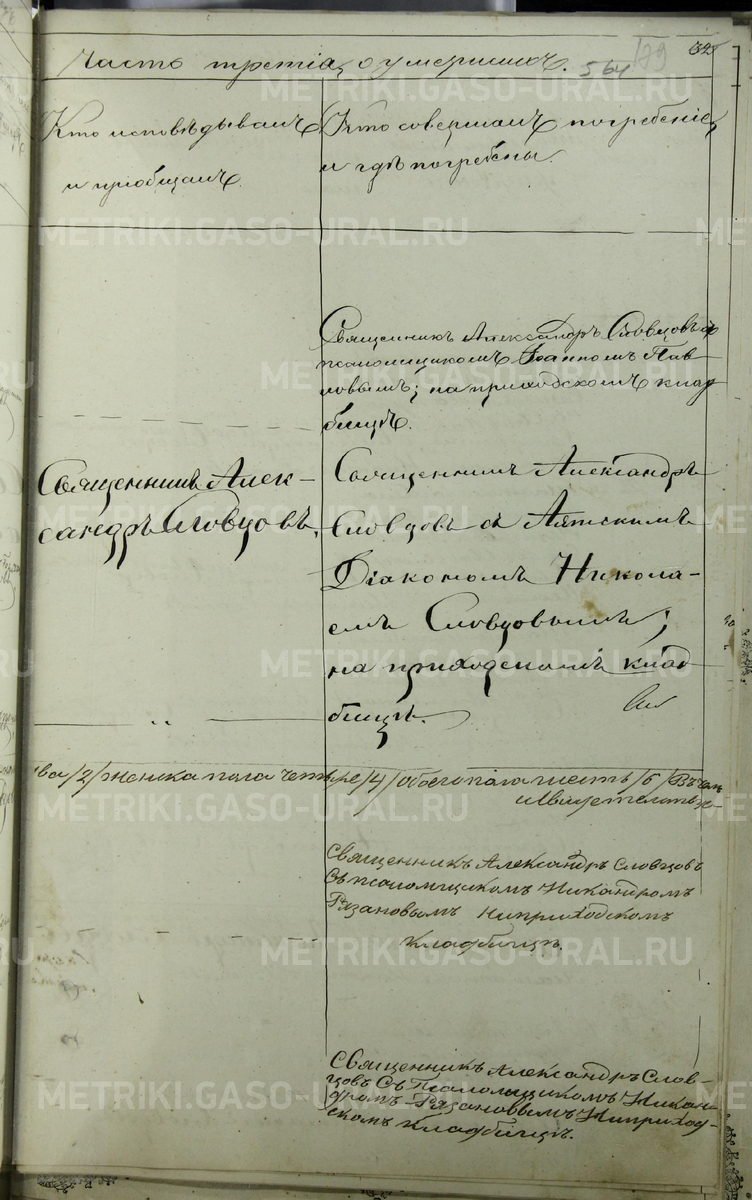 Часть третія, о умершихъ. 564 179
Кто исповѣдывалъ
и приобщалъ.
Кто совершалъ погребеніе,
и гдѣ погребены.
METRIKI.GASO-URAL.RU
Священникъ Александръ Словцовъ съ
псаломщикомъ Іоанномъ Пав-
ловымъ; на приходскомъ клад-
бищѣ.
Священникъ Алек-
сандръ Словцовъ.
Священникъ Александръ
Словцовъ съ Аятскимъ
Діакономъ Никола-
емъ Словцовымъ;
на приходскомъ клад-
бищѣ.
ва /2/ женска пола четыре /4/ обоего пола шесть /6/ Въ чемъ
и свидетельст
Священникъ Александръ Словцовъ
Съ псаломщикомъ Никандромъ
Рязановымъ Наприходскомъ
кладбищѣ.
Священникъ Александръ Слов-
цовъ Съ Псаломщикомъ Никан-
дромъ Рязановымъ Наприход-
скомъ кладбищѣ.